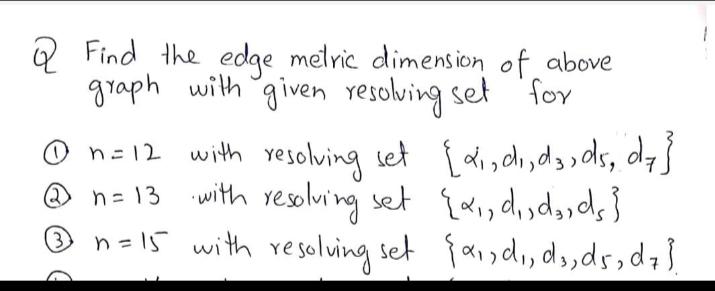 Q Find the edge metric dimension of above
graph with given resolving set for
① n=12 with resolving set {α₁,d₁,d₃,d₅,d₇}
② n=13 with resolving set {α₁,d₁,d₃,d₅}
③ n=15 with resolving set {α₁,d₁,d₃,d₅,d₇}